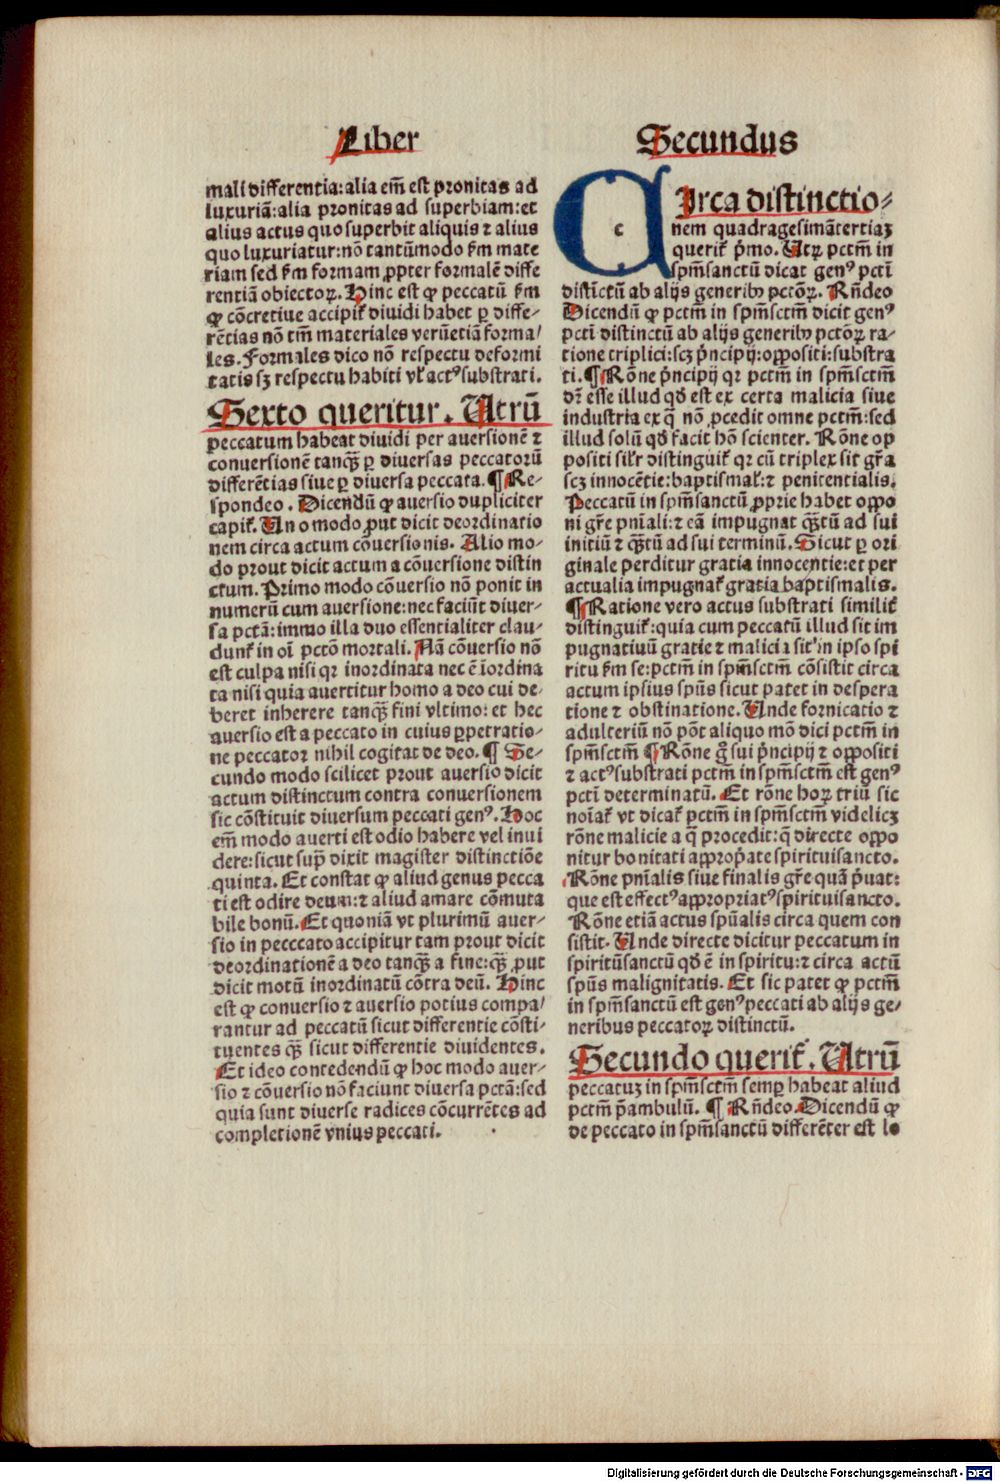 Liber
Secundus
mali differentia:alia em̃ est pronitas ad
luxuriã:alia pronitas ad superbiam:et
alius actus quo superbit aliquis ⁊ alius
quo luxuriatur:nõ tantũmodo ẜm mate
riam sed ẜm formam ꝓpter formalẽ diffe
rentiã obiectoꝝ. Hinc est ꝙ peccatũ ẜm
ꝙ cõcretiue accipit᷑ diuidi habet ꝑ diffe-
rẽtias nõ tm̃ materiales verũetiã forma/
les. Formales dico nõ respectu deformi
tatis sꝫ respectu habiti vl̕ actꝰ substrati.
Sexto queritur. Utrũ
peccatum habeat diuidi per auersionẽ ⁊
conuersionẽ tanqȝ̃ ꝑ diuersas peccatorũ
differẽtias siue ꝑ diuersa peccata. ¶ Re-
spondeo. Dicendũ ꝙ auersio dupliciter
capit᷑. Uno modo ꝓut dicit deordinatio
nem circa actum cõuersionis. Alio mo-
do prout dicit actum a cõuersione distin
ctum. Primo modo cõuersio nõ ponit in
numerũ cum auersione:nec faciũt diuer-
sa pctã:immo illa duo essentialiter clau-
dunt᷑ in oĩ pctõ mortali. Nã cõuersio nõ
est culpa nisi qr inordinata nec ẽ ĩordina
ta nisi quia auertitur homo a deo cui de-
beret inherere tanqȝ̃ fini vltimo: et hec
auersio est a peccato in cuius ꝑpetratio-
ne peccator nihil cogitat de deo. ¶ Se-
cundo modo scilicet prout auersio dicit
actum distinctum contra conuersionem
sic cõstituit diuersum peccati genꝰ. Hoc
em̃ modo auerti est odio habere vel inui
dere:sicut supꝛ̃ dixit magister distinctiõe
quinta. Et constat ꝙ aliud genus pecca
ti est odire deum:⁊ aliud amare cõmuta
bile bonũ. Et quoniã vt plurimũ auer-
sio in pecccato accipitur tam prout dicit
deordinationẽ a deo tanqȝ̃ a fine:qȝ̃ ꝓut
dicit motũ inordinatũ cõtra deũ. Hinc
est ꝙ conuersio ⁊ auersio potius compa/
rantur ad peccatũ sicut differentie cõsti-
tuentes qȝ̃ sicut differentie diuidentes.
Et ideo contedendũ ꝙ hoc modo auer-
sio ⁊ cõuersio nõ faciunt diuersa pctã:sed
quia sunt diuerse radices cõcurrẽtes ad
completionẽ vnius peccati.
c
CIrca distinctio-
nem quadragesimãtertiaꝫ
querit᷑ p̃mo. Utꝝ pctm̃ in
spm̃sanctũ dicat genꝰ pcti
distĩctũ ab alijs generibꝰ pctõꝝ. Rñdeo
Dicendũ ꝙ pctm̃ in spm̃sctm̃ dicit genꝰ
pcti distinctũ ab alijs generibꝰ pctõꝝ ra-
tione triplici:scꝫ p̃ncipij:oppositi:substra
ti. ¶ Rõne p̃ncipij qr pctm̃ in spm̃sctm̃
dr̃ esse illud qð est ex certa malicia siue
industria ex q̃ nõ ꝓcedit omne pctm̃:sed
illud solũ qð facit hõ scienter. Rõne op
positi sil̕r distinguit᷑ qr cũ triplex sit gr̃a
scꝫ innocẽtie:baptismal̕:⁊ penitentialis.
Peccatũ in spm̃sanctũ ꝓprie habet oppo
ni gr̃e pnĩali:⁊ eã impugnat qȝ̃tũ ad sui
initiũ ⁊ qȝ̃tũ ad sui terminũ. Sicut ꝑ ori
ginale perditur gratia innocentie:et per
actualia impugnat᷑ gratia baptismalis.
¶ Ratione vero actus substrati similit᷑
distinguit᷑:quia cum peccatũ illud sit im
pugnatiuũ gratie ⁊ malicia sit in ipso spi
ritu ẜm se:pctm̃ in spm̃sctm̃ cõsistit circa
actum ipsius spũs sicut patet in despera
tione ⁊ obstinatione. Unde fornicatio ⁊
adulteriũ nõ põt aliquo mõ dici pctm̃ in
spm̃sctm̃ ¶ Rõne g̃ sui p̃ncipij ⁊ oppositi
⁊ actꝰ substrati pctm̃ in spm̃sctm̃ est genꝰ
pcti determinatũ. Et rõne hoꝝ triũ sic
noĩat᷑ vt dicat᷑ pctm̃ in spm̃sctm̃ videlicꝫ
rõne malicie a q̃ procedit:q̃ directe oppo
nitur bonitati appropꝛ̃ate spirituisancto.
Rõne pnĩalis siue finalis gr̃e quã p̃uat:
que est effectꝰ appropriatꝰ spirituisancto.
Rõne etiã actus spũalis circa quem con
sistit. Unde directe dicitur peccatum in
spiritũsanctũ qð ẽ in spiritu:⁊ circa actũ
spũs malignitatis. Et sic patet ꝙ pctm̃
in spm̃sanctũ est genꝰ peccati ab alijs ge-
neribus peccatoꝝ distinctũ.
Secundo querit᷑. Utrũ
peccatuꝫ in spm̃sctm̃ semꝑ habeat aliud
pctm̃ p̃ambulũ. ¶ Rñdeo. Dicendũ ꝙ
de peccato in spm̃sanctũ differẽter est lo
Digitalisierung gefördert durch die Deutsche Forschungsgemeinschaft - DFG